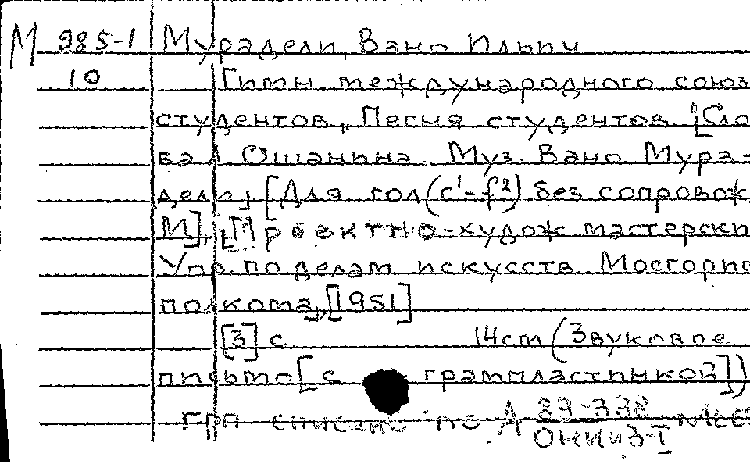 М 985-1 Мурадели, Вано Ильич
10 Гимн международного союз
студентов, Песня студентов. [Сло
ва Л Ошанина. Муз. Вано Мура-
дели] [Для гол (c¹-f²) без сопровож
М], [Проектно-худож мастерски
Упр. по делам искусств Мосгорис
полкома], [1951]
[3] с 14 cm (Звуковое
письмо [с грампластинкой])
Грп списано по А